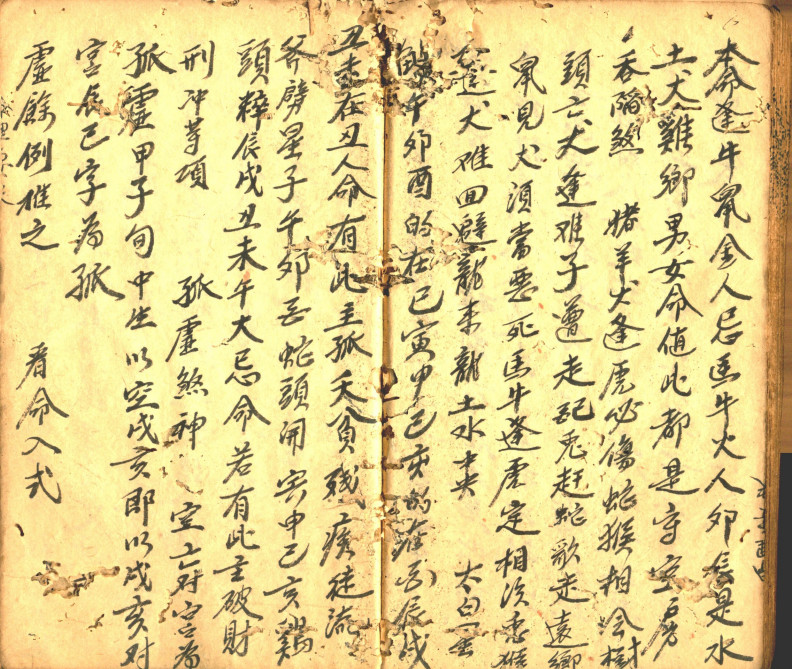 木命逢牛鼠金人忌馬牛火人卯辰是水
土犬雞鄉男女命值此都是守空房
吞陷煞 猪羊犬逢虎必傷蛇猴相會樹
頭亡犬逢雞子遭走配兔赶蛇歌走遠鄉
鼠見犬須當惡死馬牛逢虎定相次惠猴
逢犬难回避龍來龍土水中央 太白
午卯酉的在巳寅申巳亥的在酉辰戌
丑未在丑人命有此主孤夭貧残疾徒流
斧劈星子午卯酉蛇頭開寅申巳亥鷄
頭粹辰戌丑未午大忌命若有此主破財
刑冲等項 孤虛煞神 空亡对宮為
孤虛甲子旬中生以空戌亥即以戌亥对
宮辰巳字為孤
虛餘例推之 看命入式